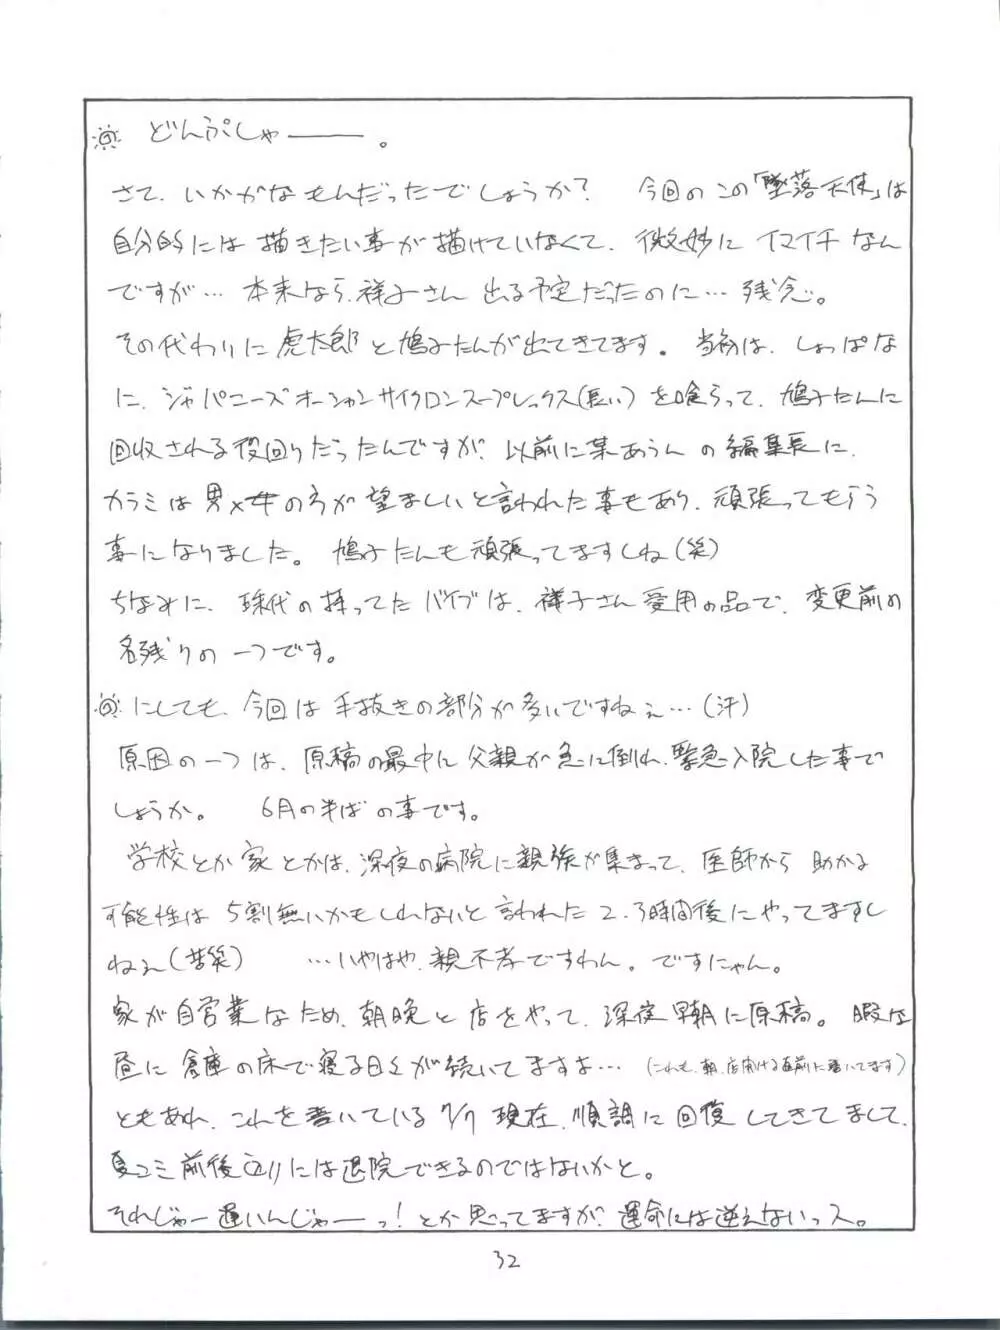 どんぷしゃ———。
さて、いかがなもんだったでしょうか？ 今回のこの「墜落天使」は
自分的には描きたい事が描けていなくて、微妙にイマイチなん
ですが…本来なら、祥子さん出る予定だったのに…残念。
その代わりに虎太郎と鳩子たんが出てきてます。当初は、しょっぱな
に、ジャパニーズオーシャンサイクロンスープレックス(長い)を喰らって、鳩子たんに
回収される役回りだったんですが、以前に某あうんの編集長に、
カラミは男×女の方が望ましいと言われた事もあり、頑張ってもらう
事になりました。鳩子たんも頑張ってますしね(笑)
ちなみに、珠代の持ってたバイブは、祥子さん愛用の品で、変更前の
名残りの一つです。
にしても、今回は手抜きの部分が多いですねぇ…(汗)
原因の一つは、原稿の最中に父親が急に倒れ、緊急入院した事で
しょうか。 6月の半ばの事です。
学校とか家とかは、深夜の病院に親族が集まって、医師から助かる
可能性は5割無いかもしれないと言われた2、3時間後にやってますし
ねぇ(苦笑) …いやはや、親不孝ですわん。ですにゃん。
家が自営業なため、朝晩と店をやって、深夜早朝に原稿。暇な
昼に倉庫の床で寝る日々が続いてますよ…(これも、朝、店開ける直前に書いてます)
ともあれ、これを書いている7/7現在、順調に回復してきてまして、
夏コミ前後辺りには退院できるのではないかと。
それじゃー遅いんじゃーっ！とか思ってますが、運命には逆えないっス。
32